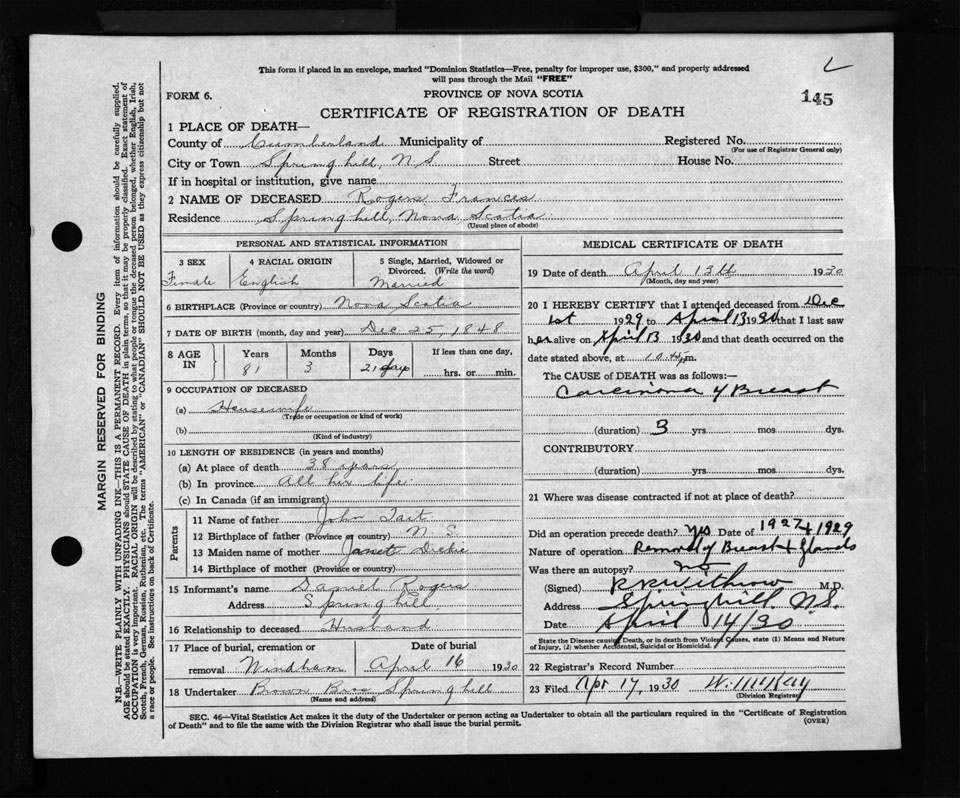 This form if placed in an envelope, marked "Dominion Statistics—Free, penalty for improper use, $300," and properly addressed
will pass through the Mail "FREE"
FORM 6.
PROVINCE OF NOVA SCOTIA
145
CERTIFICATE OF REGISTRATION OF DEATH
1 PLACE OF DEATH—
County of Cumberland Municipality of Registered No.
(For use of Registrar General only)
City or Town Springhill, N S Street House No.
If in hospital or institution, give name
2 NAME OF DECEASED Rogers Frances
Residence Springhill, Nova Scotia
(Usual place of abode)
PERSONAL AND STATISTICAL INFORMATION
3 SEX
Female
4 RACIAL ORIGIN
English
5 Single, Married, Widowed or
Divorced. (Write the word)
Married
6 BIRTHPLACE (Province or country) Nova Scotia
7 DATE OF BIRTH (month, day and year) Dec 25, 1848
8 AGE IN
Years Months Days If less than one day,
81 3 21 days hrs. or min.
9 OCCUPATION OF DECEASED
(a) Housewife
(Trade or occupation or kind of work)
(b)
(Kind of industry)
10 LENGTH OF RESIDENCE (in years and months)
(a) At place of death 38 years
(b) In province All her life
(c) In Canada (if an immigrant)
Parents
11 Name of father John Tait
12 Birthplace of father (Province or country) N. S.
13 Maiden name of mother Janet
14 Birthplace of mother (Province or country)
15 Informant's name Daniel Rogers
Address Springhill
16 Relationship to deceased Husband
17 Place of burial, cremation or Date of burial
removal Windham April 16 1930
18 Undertaker Brown Bros Springhill
(Name and address)
MEDICAL CERTIFICATE OF DEATH
19 Date of death April 13th 1930
(Month, day and year)
20 I HEREBY CERTIFY that I attended deceased from Dec
1st 1929 to April 13 1930 that I last saw
her alive on April 13 1930 and that death occurred on
date stated above, at 10. m.
The CAUSE of DEATH was as follows:—
Carcinoma of Breast
(duration) 3 yrs mos dys.
CONTRIBUTORY
(duration) yrs mos dys.
21 Where was disease contracted if not at place of death?
Did an operation precede death? Yes Date of 1927 + 1929
Nature of operation Removal of Breast + glands
Was there an autopsy? no
(Signed) Withrow M.D.
Address Springhill N.S.
Date April 14/30
State the Disease causing Death, or in death from Violent Causes, state (1) Means and Nature
of Injury, (2) whether Accidental, Suicidal or Homicidal.
22 Registrar's Record Number
23 Filed Apr 17, 1930 W. McKay
(Division Registrar)
SEC. 46—Vital Statistics Act makes it the duty of the Undertaker or person acting as Undertaker to obtain all the particulars required in the "Certificate of Registration
of Death" and to file the same with the Division Registrar who shall issue the burial permit.
(OVER)
MARGIN RESERVED FOR BINDING
N.B.—WRITE PLAINLY WITH UNFADING INK—THIS IS A PERMANENT RECORD. Every item of information should be carefully supplied.
AGE should be stated EXACTLY. PHYSICIANS should STATE CAUSE OF DEATH in plain terms, so that it may be properly classified. Exact statement of
OCCUPATION is very important. RACIAL ORIGIN will be described by stating to what people or tongue the deceased person belonged, whether English, Irish,
Scotch, French, German, Russian, Ruthenian, etc. The terms "AMERICAN" or "CANADIAN" SHOULD NOT BE USED as they express citizenship but not
a race or people. See instructions on back of Certificate.